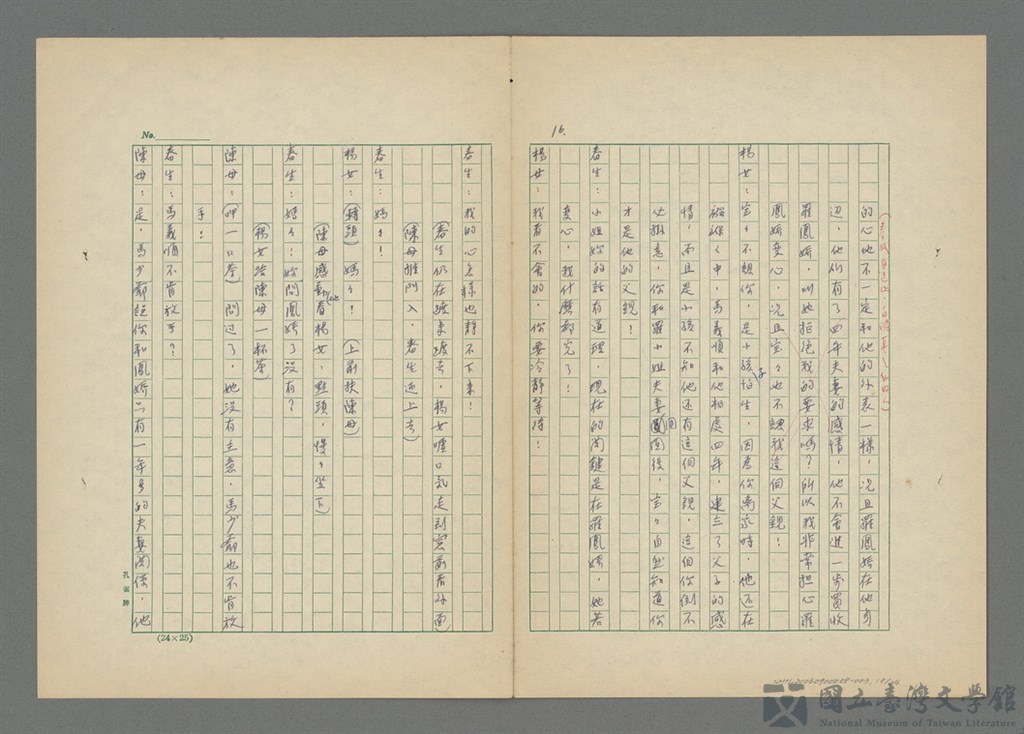 16.
的心也不一定和他的外表一樣，况且羅鳳嬌在他身
边，他们有了四年夫妻的感情，他不會進一步買收
羅鳳嬌，叫她拒绝我的要求嗎？所以我非常担心羅
鳳嬌变心，况且宝々也不認我這個父親！
楊女：宝々不認你，是小孩子怕生，因為你离家時，他还在
襁褓之中，馬義順和他相處四年，建立了父子的感
情，而且是小孩不知他还有這個父親，這個你倒不
必掛意，你和羅小姐夫妻團圓後，宝々自然知道你
才是他的父親！
春生：小姐妳的話有道理，現在的関鍵是在羅鳳嬌，她若
变心，我什麼都完了！
楊女：我看不會的，你要冷靜等待！
No.
春生：我的心怎樣也靜不下來！
（春生仍在踱來踱去，楊女嘆口氣走到窓前看外面）
（陳母推門入，春生迎上去）
春生：媽々！
楊女：（轉頭）媽々！（上前扶陳母）
（陳母感動地看楊女，點頭，慢々坐下）
春生：媽々：妳問鳳嬌了沒有？
（楊女給陳母一杯茶）
陳母：（呷一口茶）問过了，她沒有主意，馬少爺也不肯放
手！
春生：馬義順不肯放手？
陳母：是，馬少爺說你和鳳嬌只有一年多的夫妻関係，他
孔雀牌
(24×25)
國立臺灣文學館
National Museum of Taiwan Literature